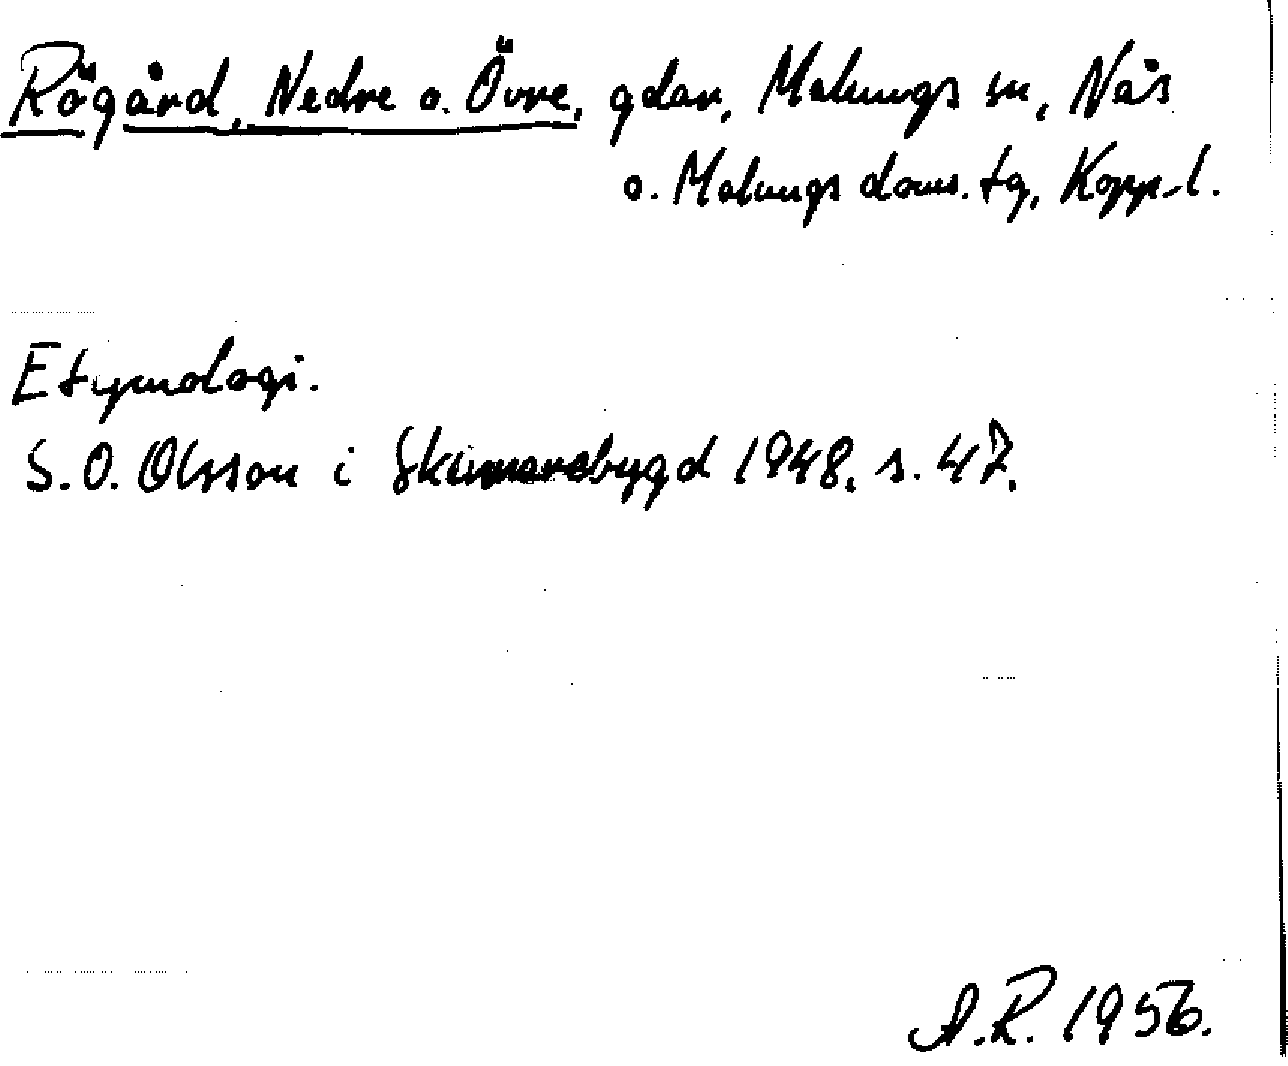 Rögård, Nedre o. Övre, gdar, Malungs sn, Nås
o. Malungs doms. tg, Kopp. l.
Etymologi.
S. O. Olsson i Skinnarebygd 1948. s. 47.
A.R. 1956.